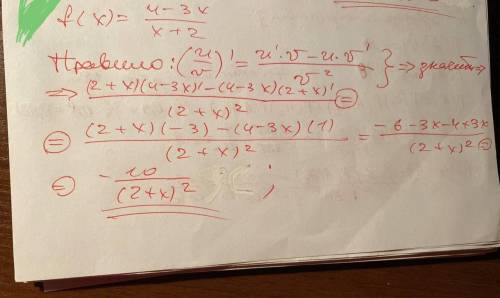 f(x) = (4-3x)/(x+2)
Правило: (u/v)' = (u'·v - u·v')/v² } ⇒ значит ⇒
⇒ ((2+x)(4-3x)' - (4-3x)(2+x)')/(2+x)² =
= ((2+x)(-3) - (4-3x)(1))/(2+x)² = (-6-3x-4+3x)/(2+x)² =
= -10/(2+x)² ;